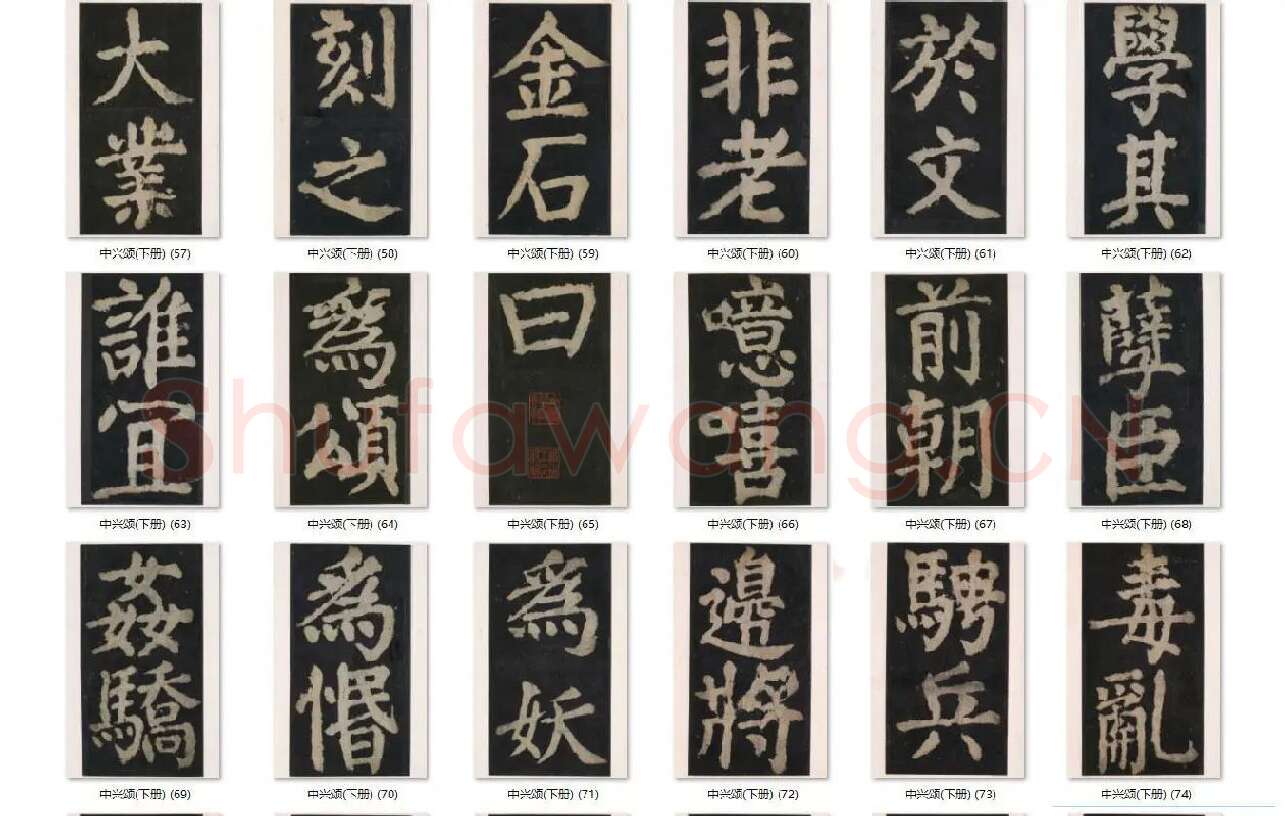 大業
刻之
金石
非老
於文
學其
中兴颂(下册) (57)
中兴颂(下册) (58)
中兴颂(下册) (59)
中兴颂(下册) (60)
中兴颂(下册) (61)
中兴颂(下册) (62)
誰宜
爲頌
曰
噫嘻
前朝
孽臣
Shufawang.CN
中兴颂(下册) (63)
中兴颂(下册) (64)
中兴颂(下册) (65)
中兴颂(下册) (66)
中兴颂(下册) (67)
中兴颂(下册) (68)
姦驕
爲惽
爲妖
邊將
騁兵
毒亂
中兴颂(下册) (69)
中兴颂(下册) (70)
中兴颂(下册) (71)
中兴颂(下册) (72)
中兴颂(下册) (73)
中兴颂(下册) (74)